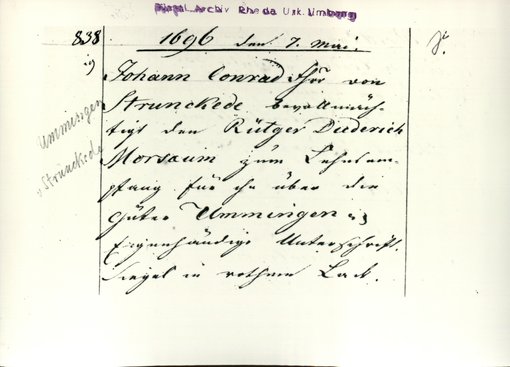 Fürstl. Archiv Rheda Urk. Limburg
838
1696 den 7. Mai.
Johann Conrad Fhr von
Strunckede bevollmäch-
tigt den Rütger Diederich
Morsaum zum Lehnsem-
pfang für ihn über die
Güter Ummingen
Eigenhändige Unterschrift.
Siegel in rothem Lack.
Ummingen
Strunckede